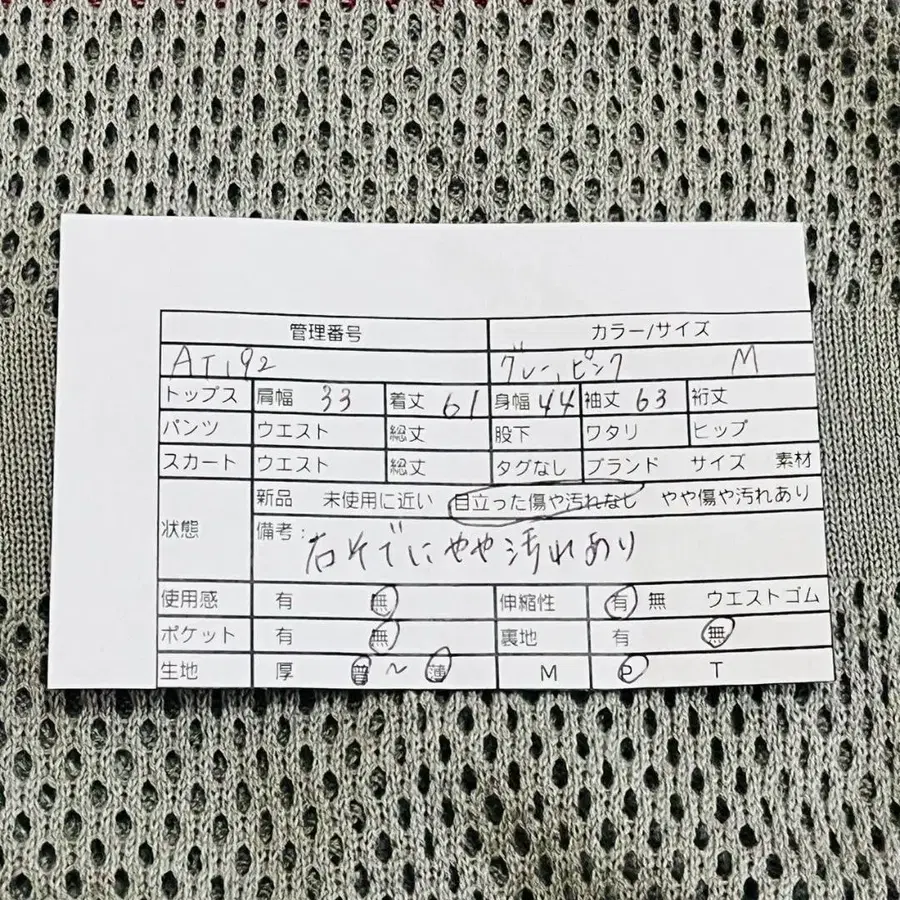 管理番号 カラー/サイズ
AT192 グレー,ピンク M
トップス 肩幅 33 着丈 61 身幅 44 袖丈 63 裄丈
パンツ ウエスト 総丈 股下 ワタリ ヒップ
スカート ウエスト 総丈 タグなし ブランド サイズ 素材
状態 新品 未使用に近い 目立った傷や汚れなし やや傷や汚れあり
備考: 右そでにやや汚れあり
使用感 有 無 伸縮性 有 無 ウエストゴム
ポケット 有 無 裏地 有 無
生地 厚 普 ~ 薄 M e T